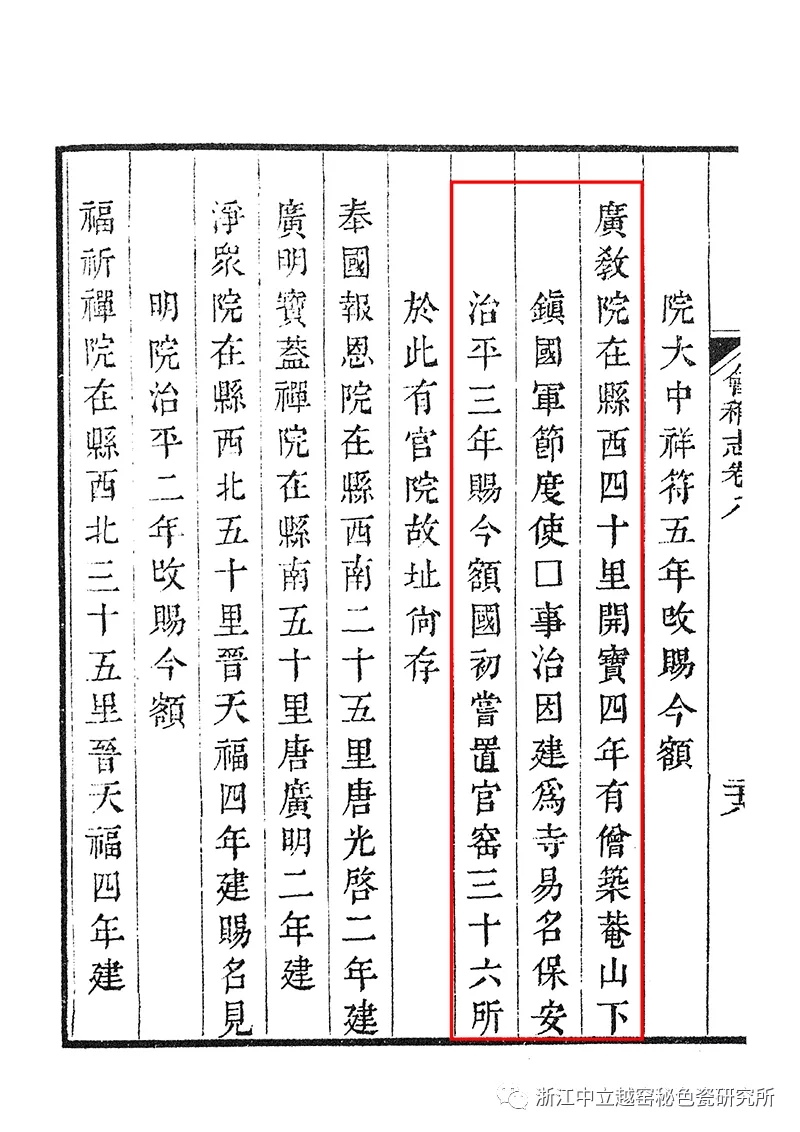 會稽志卷八
院大中祥符五年改賜今額
廣教院在縣西四十里開寶四年有僧築菴山下
鎭國軍節度使□事治因建爲寺易名保安
治平三年賜今額國初嘗置官窑三十六所
於此有官院故址尙存
奉國報恩院在縣西南二十五里唐光啓二年建
廣明寶蓋禪院在縣南五十里唐廣明二年建
淨衆院在縣西北五十里晉天福四年建賜名見
明院治平二年改賜今額
福祈禪院在縣西北三十五里晉天福四年建
浙江中立越窑秘色瓷研究所